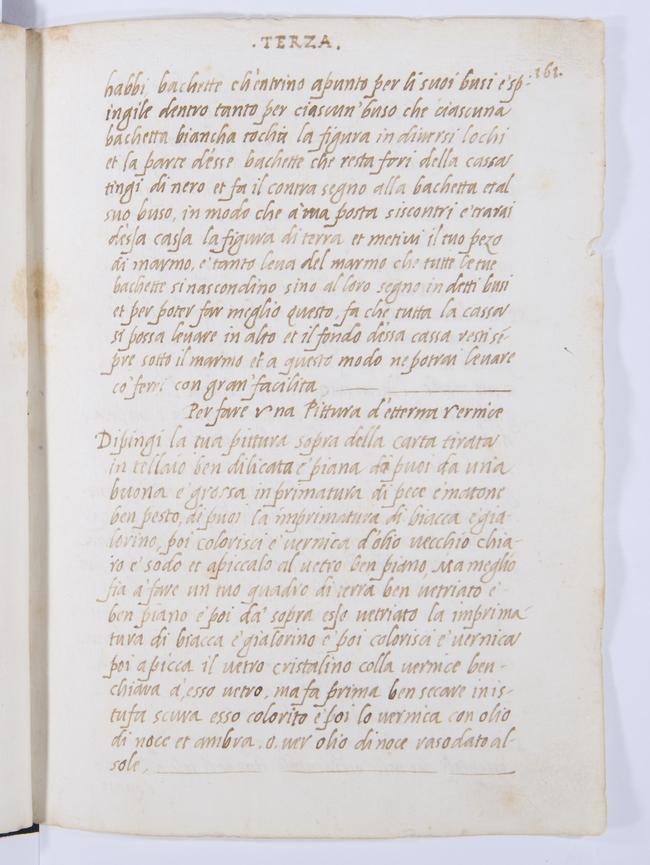 .TERZA.
.161.
habbi bachette ch'entrino apunto per li suoi busi e sp-
ingile dentro tanto per ciascun' buso che ciascuna
bachetta biancha tochi la figura in diversi lochi
et la parte d'esse bachette che resta fori della cassa
tingi di nero et fa il contra segno alla bachetta et al
suo buso, in modo che à tua posta si scontri e trarai
d'essa cassa la figura di terra et metivi il tuo pezo
di marmo, e tanto leva del marmo che tutte le tue
bachette si nascondino sino al loro segno in detti busi
et per poter far meglio questo, fa che tutta la cassa
si possa levare in alto et il fondo d'essa cassa resti sē-
pre sotto il marmo et a questo modo ne potrai levare
co' ferri con gran' facilita
Per fare una Pittura d'etterna vernice
Dipingi la tua pittura sopra della carta tirata
in tellaio ben dilicata e piana da puoi da una
buona e grossa inprimatura di pece e matone
ben pesto, di puoi la imprimatura di biacca e gia-
lorino, poi colorisci e vernica d'olio vecchio chia-
ro e sodo et apiccalo al vetro ben piano, Ma meglio
fia à fare un tuo quadro di terra ben vetriato e
ben piano e poi da' sopra esso vetriato la imprima-
tura di biacca e gialorino e poi colorisci e vernica
poi apicca il vetro cristalino colla vernice ben-
chiara à, esso vetro, ma fa prima ben secare in is-
tufa scura esso colorito e poi lo vernica con olio
di noce et ambra .o. ver olio di noce rasodato al
sole,